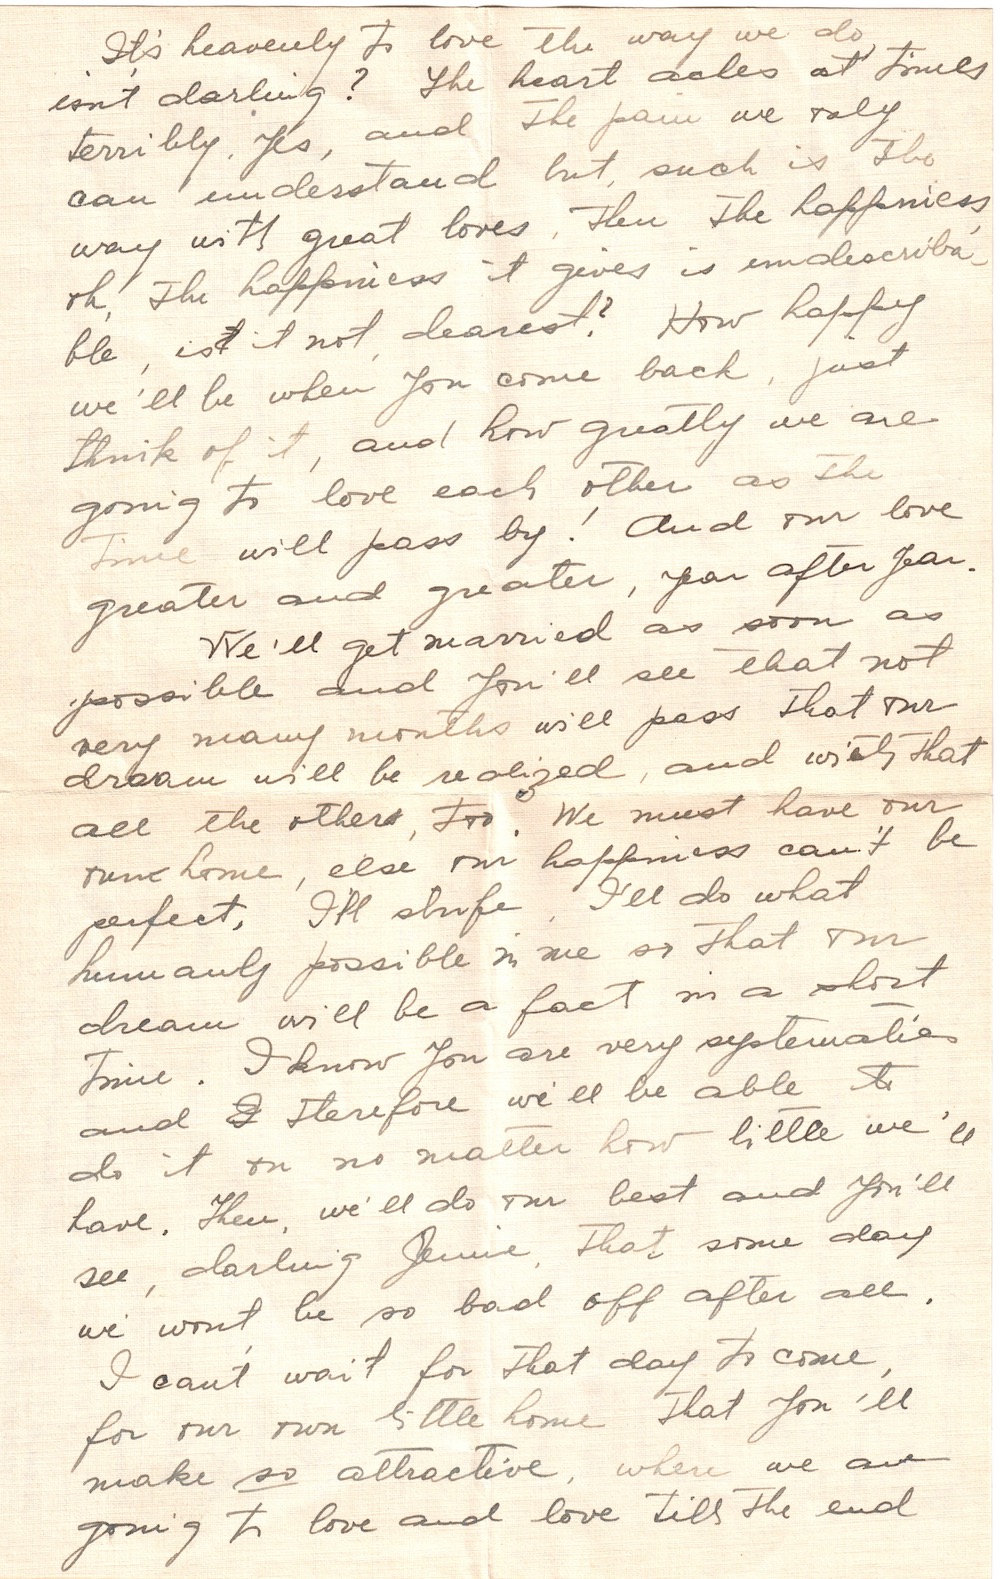 It's heavenly to love the way we do,
isn't darling? The heart aches at times
terribly. Yes, and the pain we only
can understand but, such is the
way with great loves. Then the happiness,
oh, the happiness it gives is undescriba-
ble, is it not, dearest? How happy
we'll be when you come back, just
think of it, and how greatly we are
going to love each other as the
time will pass by! And our love
greater and greater, year after year.
We'll get married as soon as
possible and you'll see that not
very many months will pass that our
dream will be realized, and with that
all the others, too. We must have our
own home, else our happiness can't be
perfect. I'll strife, I'll do what
humanly possible in me so that our
dream will be a fact in a short
time. I know you are very systematic
and therefore we'll be able to
do it on no matter how little we'll
have. Then, we'll do our best and you'll
see, darling Jennie, that some day
we won't be so bad off after all.
I can't wait for that day to come,
for our own little home that you'll
make so attractive, where we are
going to love and love till the end